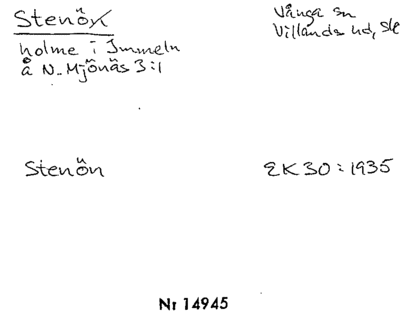 Stenön
Vånga sn
Villands hd, Sk
holme i Immeln
å N. Mjönäs 3:1
Stenön
EK 30:1935
Nr 14945